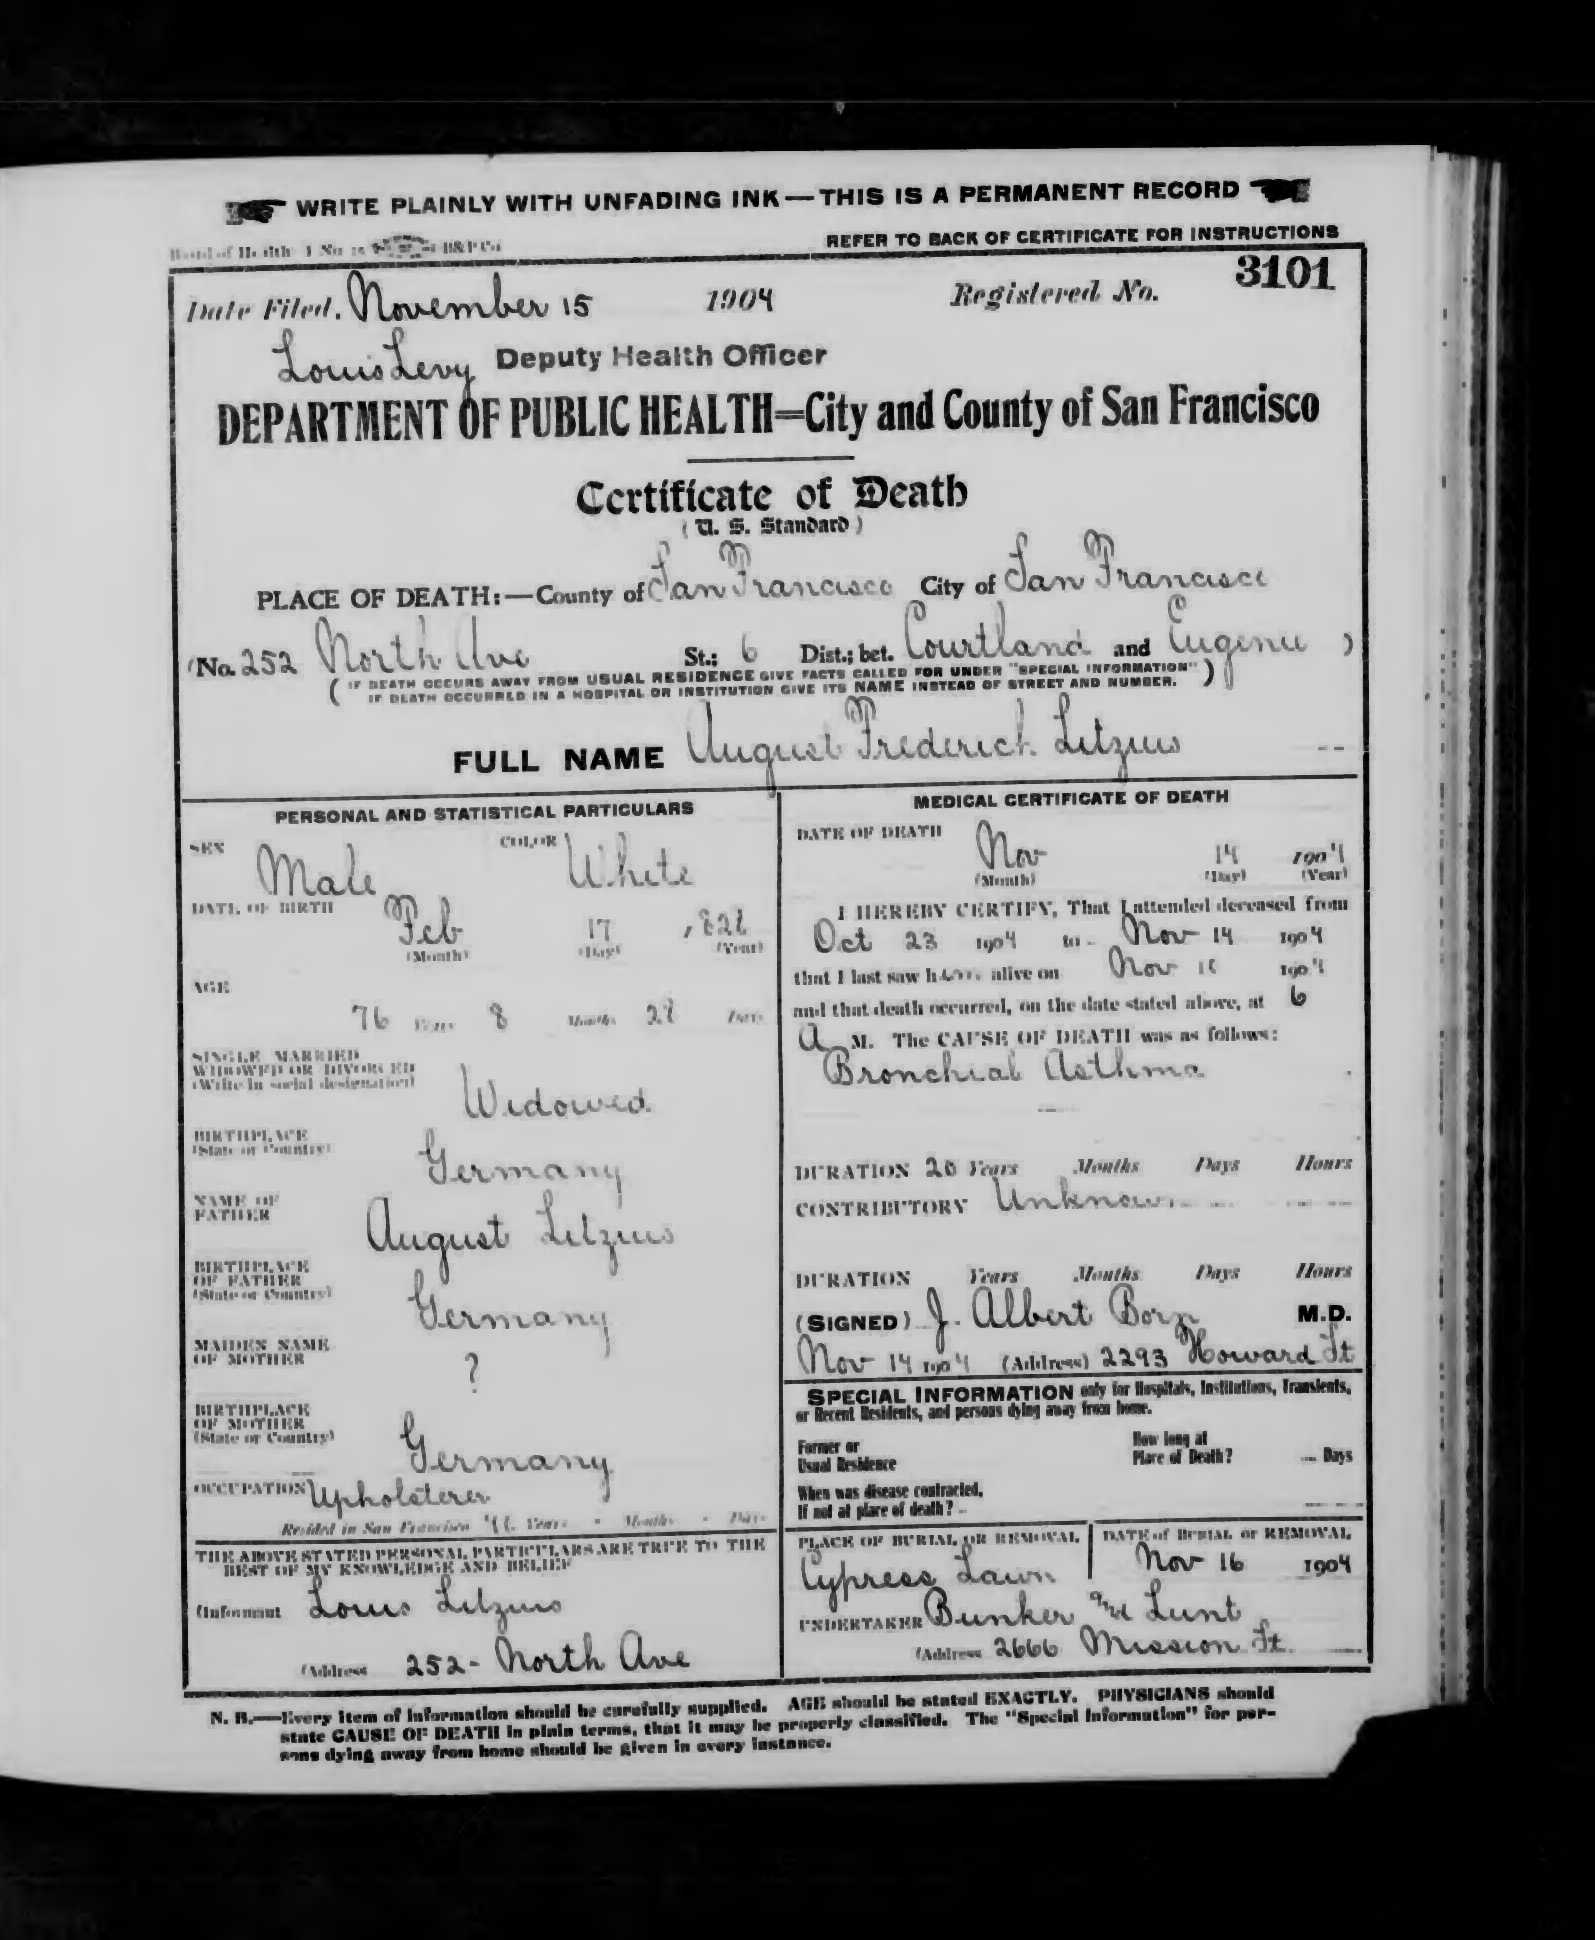 WRITE PLAINLY WITH UNFADING INK — THIS IS A PERMANENT RECORD
Board of Health B&P Co
REFER TO BACK OF CERTIFICATE FOR INSTRUCTIONS
Date Filed, November 15 1904 Registered No. 3101
Louis Levy Deputy Health Officer
DEPARTMENT OF PUBLIC HEALTH=City and County of San Francisco
Certificate of Death
(U. S. Standard)
PLACE OF DEATH:—County of San Francisco City of San Francisco
(No. 252 North Ave St.; 6 Dist.; bet. Courtland and Eugenie )
( IF DEATH OCCURS AWAY FROM USUAL RESIDENCE GIVE FACTS CALLED FOR UNDER "SPECIAL INFORMATION" )
IF DEATH OCCURRED IN A HOSPITAL OR INSTITUTION GIVE ITS NAME INSTEAD OF STREET AND NUMBER.
FULL NAME August Frederich Litzius
PERSONAL AND STATISTICAL PARTICULARS
SEX Male COLOR White
DATE OF BIRTH Feb 17 1828
(Month) (Day) (Year)
AGE
76 Years 8 Months 28 Days
SINGLE MARRIED
WIDOWED OR DIVORCED
(Write in social designation)
Widowed
BIRTHPLACE
(State or Country)
Germany
NAME OF
FATHER
August Litzius
BIRTHPLACE
OF FATHER
(State or Country)
Germany
MAIDEN NAME
OF MOTHER
?
BIRTHPLACE
OF MOTHER
(State or Country)
Germany
OCCUPATION Upholsterer
Resided in San Francisco Years - Months - Days
THE ABOVE STATED PERSONAL PARTICULARS ARE TRUE TO THE
BEST OF MY KNOWLEDGE AND BELIEF
(Informant Louis Litzius
(Address 252- North Ave
MEDICAL CERTIFICATE OF DEATH
DATE OF DEATH Nov 14 1904
(Month) (Day) (Year)
I HEREBY CERTIFY, That I attended deceased from
Oct 23 1904 to Nov 14 1904
that I last saw him alive on Nov 1904
and that death occurred, on the date stated above, at 6
A M. The CAUSE OF DEATH was as follows:
Bronchial Asthma
DURATION 20 Years Months Days Hours
CONTRIBUTORY Unknown
DURATION Years Months Days Hours
(SIGNED) J. Albert Born M.D.
Nov 14 1904 (Address) 2293 Howard St
SPECIAL INFORMATION only for Hospitals, Institutions, Transients,
or Recent Residents, and persons dying away from home.
Former or
Usual Residence
How long at
Place of Death? Days
When was disease contracted,
If not at place of death?
PLACE OF BURIAL OR REMOVAL DATE of BURIAL or REMOVAL
Cypress Lawn Nov 16 1904
UNDERTAKER Bunker and Lunt
(Address 2666 Mission St.
N. B.—Every item of information should be carefully supplied. AGE should be stated EXACTLY. PHYSICIANS should
state CAUSE OF DEATH in plain terms, that it may be properly classified. The "Special Information" for per-
sons dying away from home should be given in every instance.